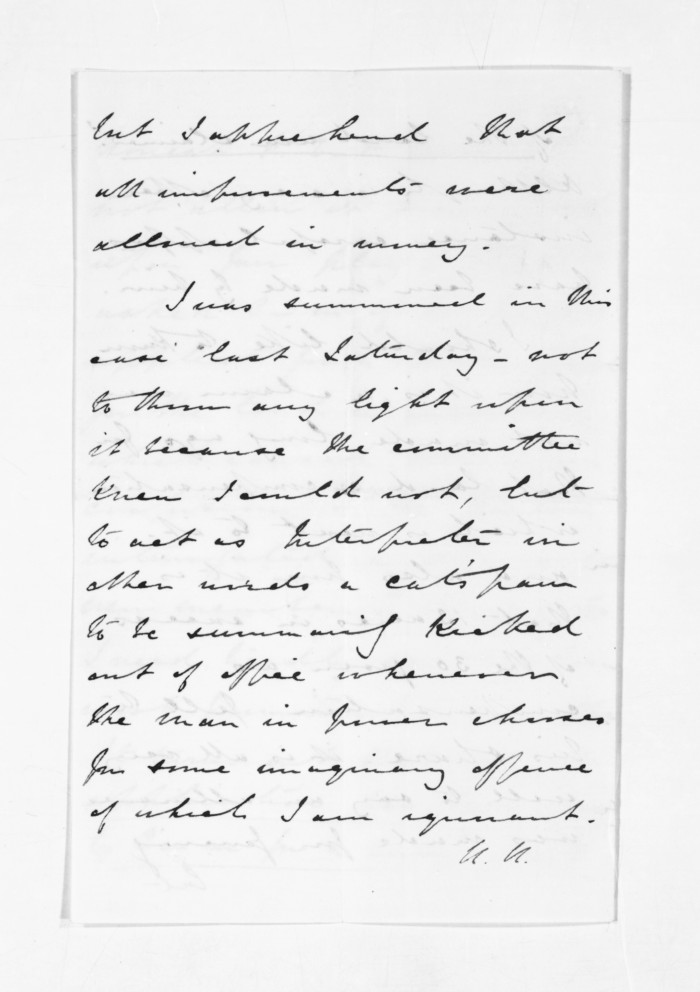 but I apprehend that
all improvements were
allowed in money.
I was summoned in this
case last Saturday - not
to throw any light upon
it because the committee
knew I could not, but
to act as Interpreter in
other words a cat's paw
to be summarily kicked
out of office whenever
the man in power chooses
for some imaginary offence
of which I am ignorant.